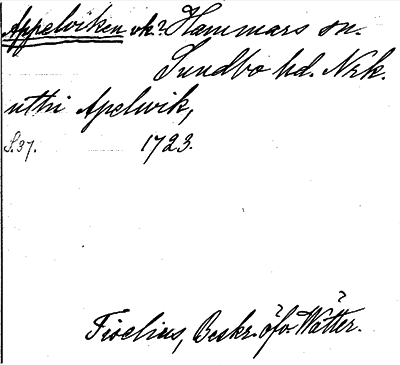 Appelviken vk? Hammars sn.
Sundbo hd. Nrk.
uthi Apelwik,
S.37. 1723.
Tiselius, Beskr. öfv. Wätter.